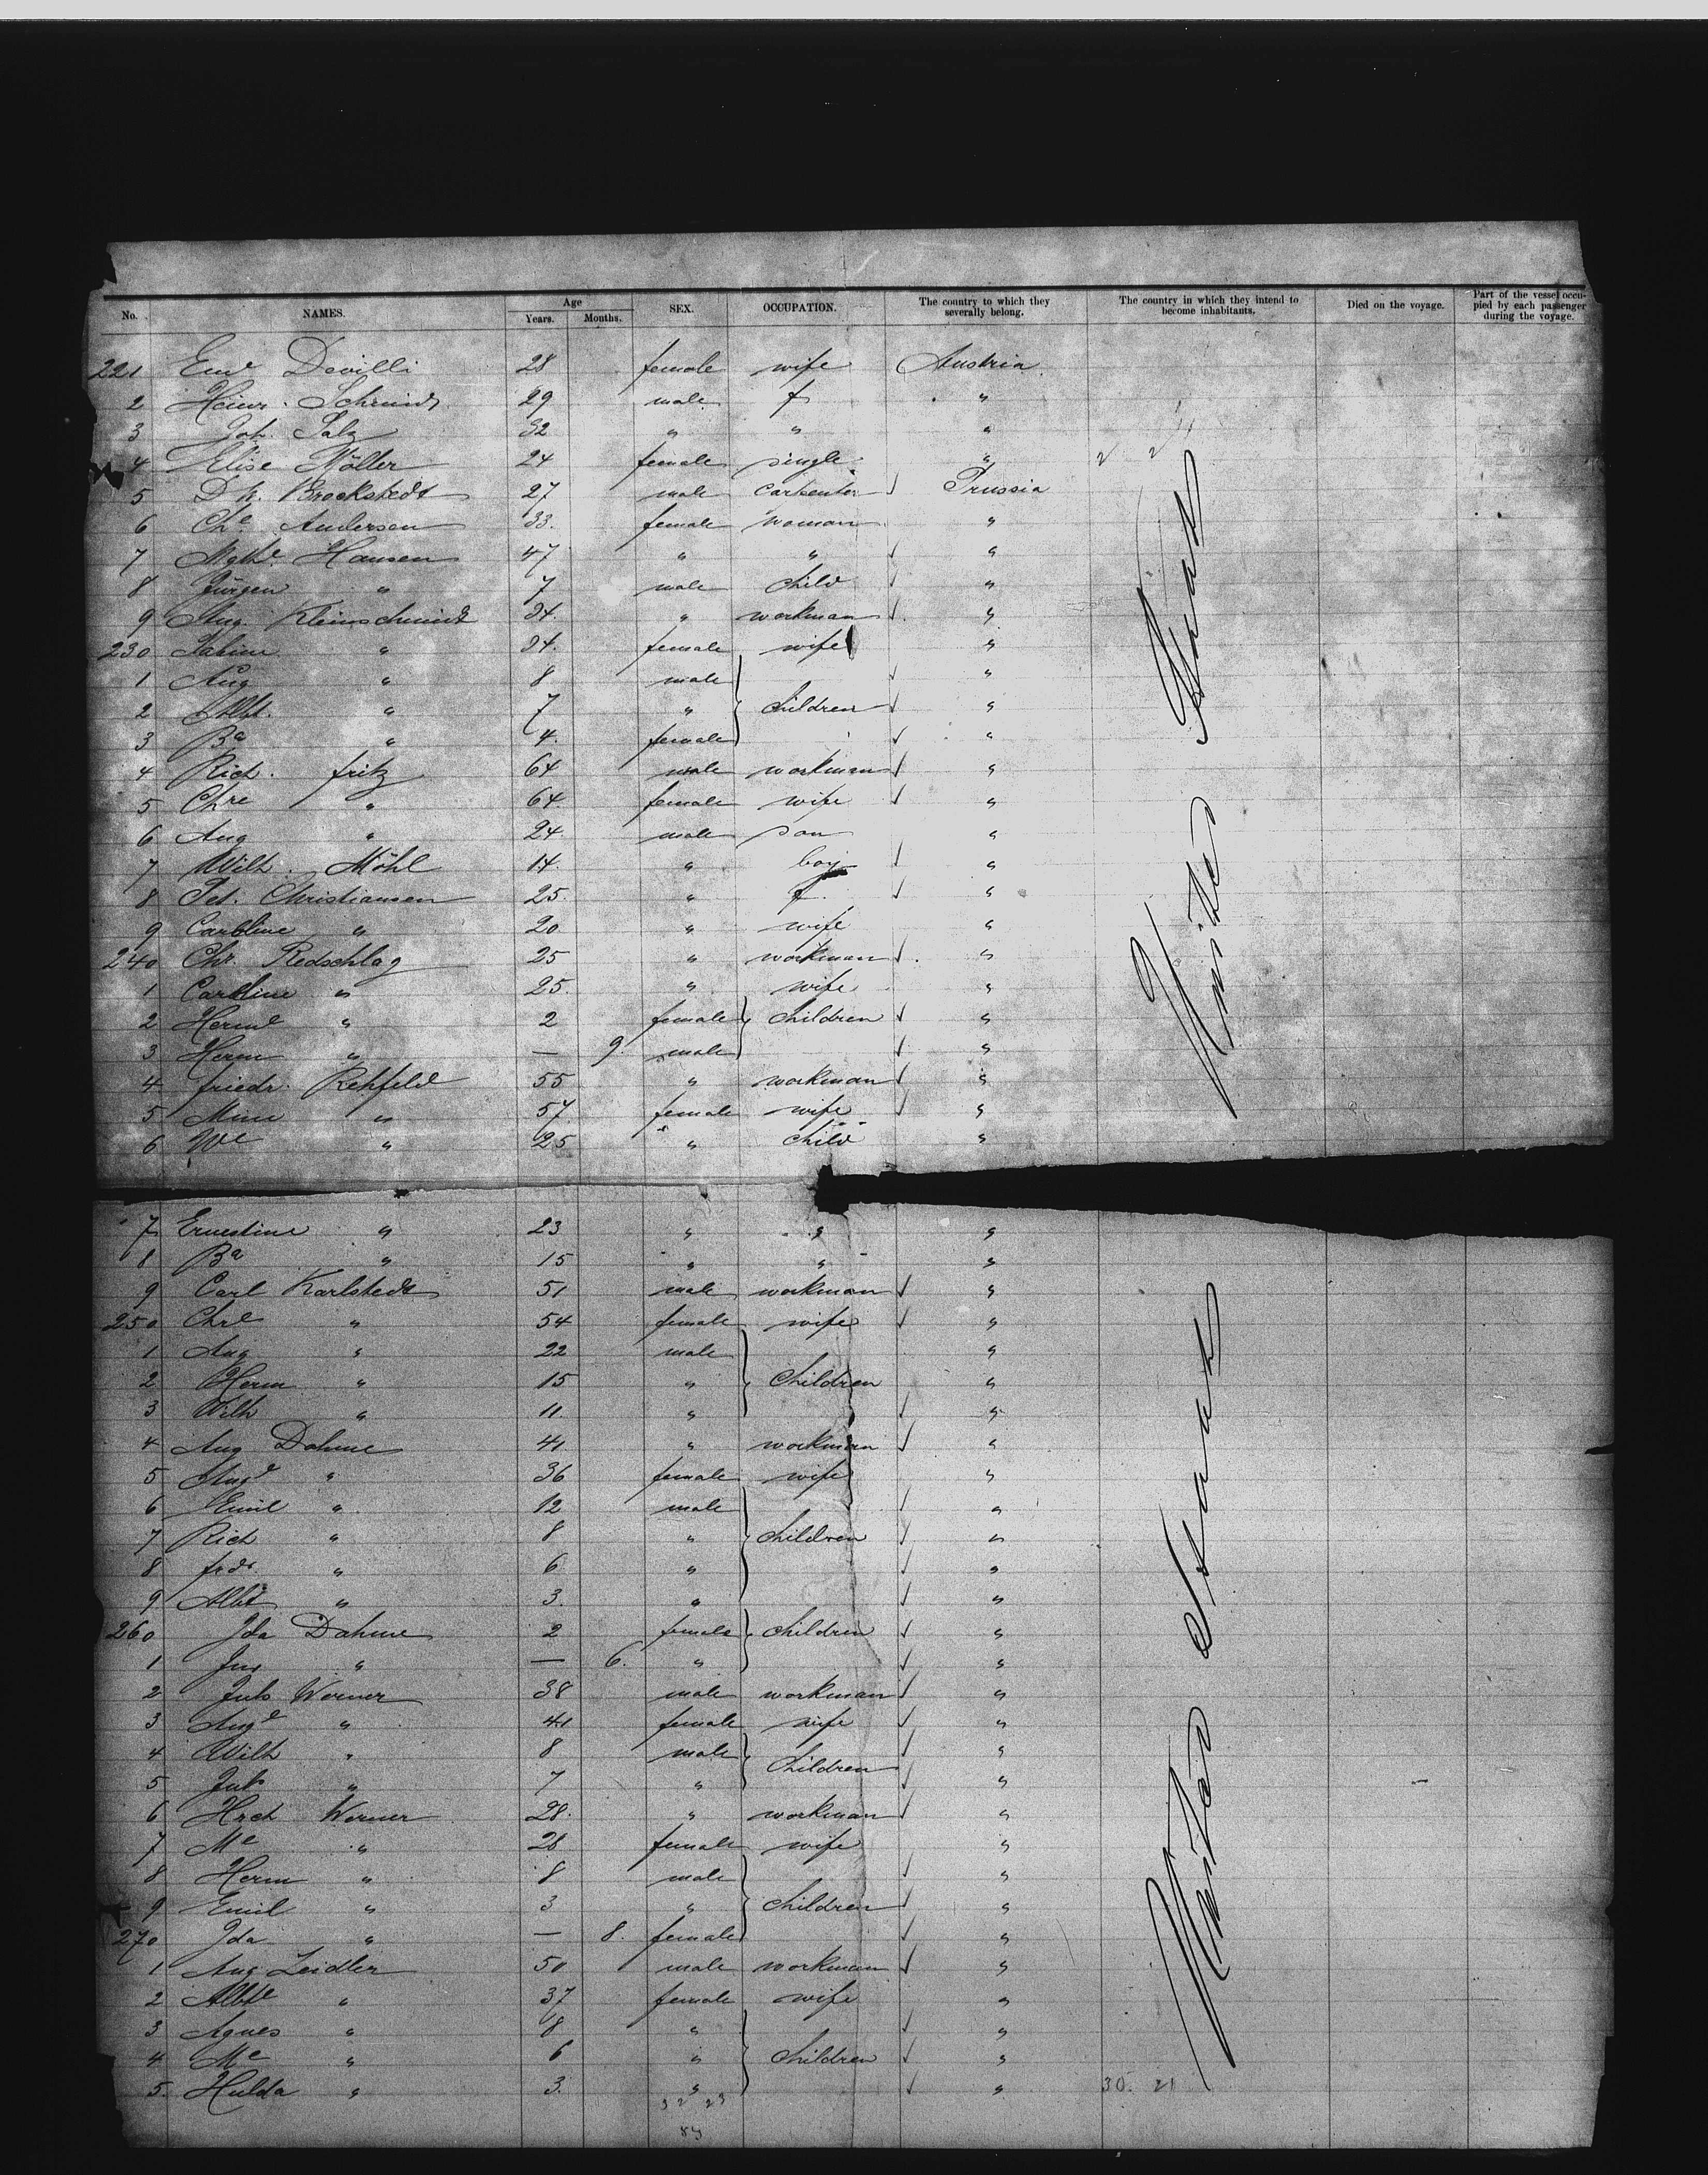 No. NAMES. Age Years. Months. SEX. OCCUPATION. The country to which they severally belong. The country in which they intend to become inhabitants. Died on the voyage. Part of the vessel occupied by each passenger during the voyage.
221 Devilli 28 female wife Austria
2 Heinr. Schmidt 29 male f "
3 Joh. Salz 32 " " "
4 Elise Möller 24 female single "
5 Brockstedt 27 male carpenter Prussia
6 Che Andersen 33 female woman "
7 Mgthe Hansen 47 " " "
8 Jürgen " 7 male child "
9 Aug. Kleinschmidt 34 " workman "
230 Sabine " 34 female wife "
1 Aug " 8 male "
2 Albt. " 7 " children "
3 Ba " 4 female "
4 Rich. fritz 64 male workman "
5 Chre " 64 female wife "
6 Aug " 24 male son "
7 Wilh. Möhl 14 " boy "
8 Pet. Christiansen 25 " f "
9 Caroline " 20 " wife "
240 Chr. Redschlag 25 " workman "
1 Caroline " 25 " wife "
2 Herme " 2 female children "
3 Herm " — 9 male "
4 friedr. Rehfeld 55 " workman "
5 Mine " 57 female wife "
6 We " 25 " child "
7 Ernestine " 23 " " "
8 Ba " 15 " " "
9 Carl Karlstedt 51 male workman "
250 Chre " 54 female wife "
1 Aug " 22 male "
2 Herm " 15 " Children "
3 Wilh " 11 " "
4 Aug Dahme 41 " workman "
5 Auge " 36 female wife "
6 Emil " 12 male "
7 Rich " 8 " children "
8 frdr. " 6 " "
9 Albt " 3 " "
260 Ida Dahme 2 female children "
1 " — 6 " "
2 Juls Werner 38 male workman "
3 Auge " 41 female wife "
4 Wilh " 8 male children "
5 Juls " 7 " "
6 Hrch Werner 28 " workman "
7 Me " 28 female wife "
8 Herm " 8 male "
9 Emil " 3 " children "
270 Ida " — 8 female "
1 Aug Zeidler 50 male workman "
2 Albte " 37 female wife "
3 Agnes " 8 " "
4 Me " 6 " children "
5 Hulda " 3 " "
30. 21
32 23
United States
United States